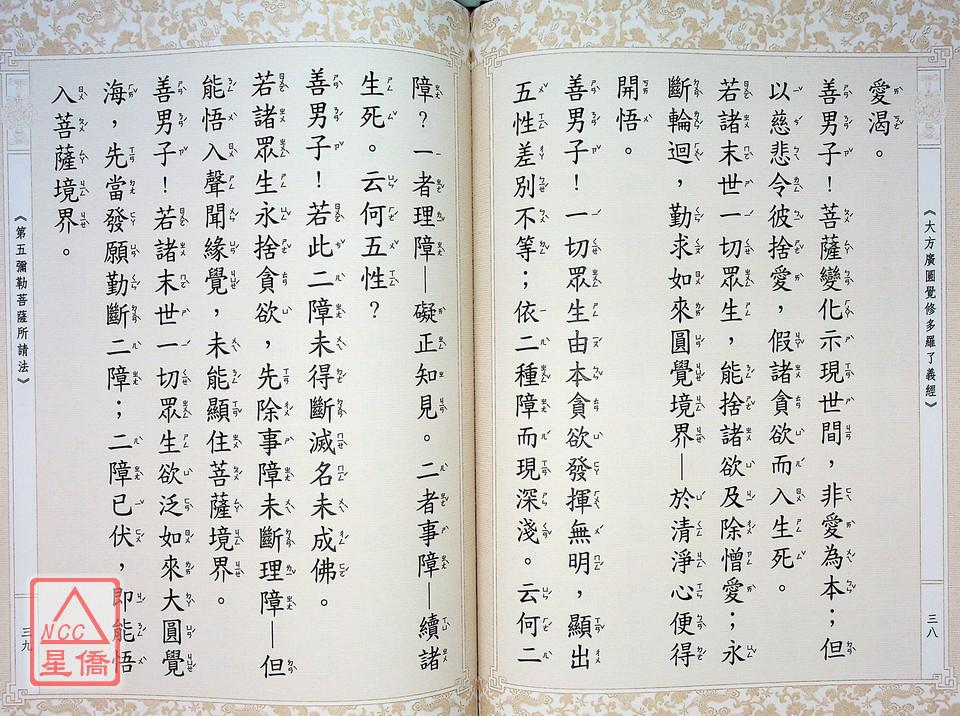 《大方廣圓覺修多羅了義經》
三八
愛渴。
善男子！菩薩變化示現世間，非愛為本；但
以慈悲令彼捨愛，假諸貪欲而入生死。
若諸末世一切眾生，能捨諸欲及除憎愛；永
斷輪迴，勤求如來圓覺境界—於清淨心便得
開悟。
善男子！一切眾生由本貪欲發揮無明，顯出
五性差別不等；依二種障而現深淺。云何二
障？一者理障—礙正知見。二者事障—續諸
生死。云何五性？
善男子！若此二障未得斷滅名未成佛。
若諸眾生永捨貪欲，先除事障未斷理障—但
能悟入聲聞緣覺，未能顯住菩薩境界。
善男子！若諸末世一切眾生欲泛如來大圓覺
海，先當發願勤斷二障；二障已伏，即能悟
入菩薩境界。
《第五彌勒菩薩所請法》
三九
NCC
星僑